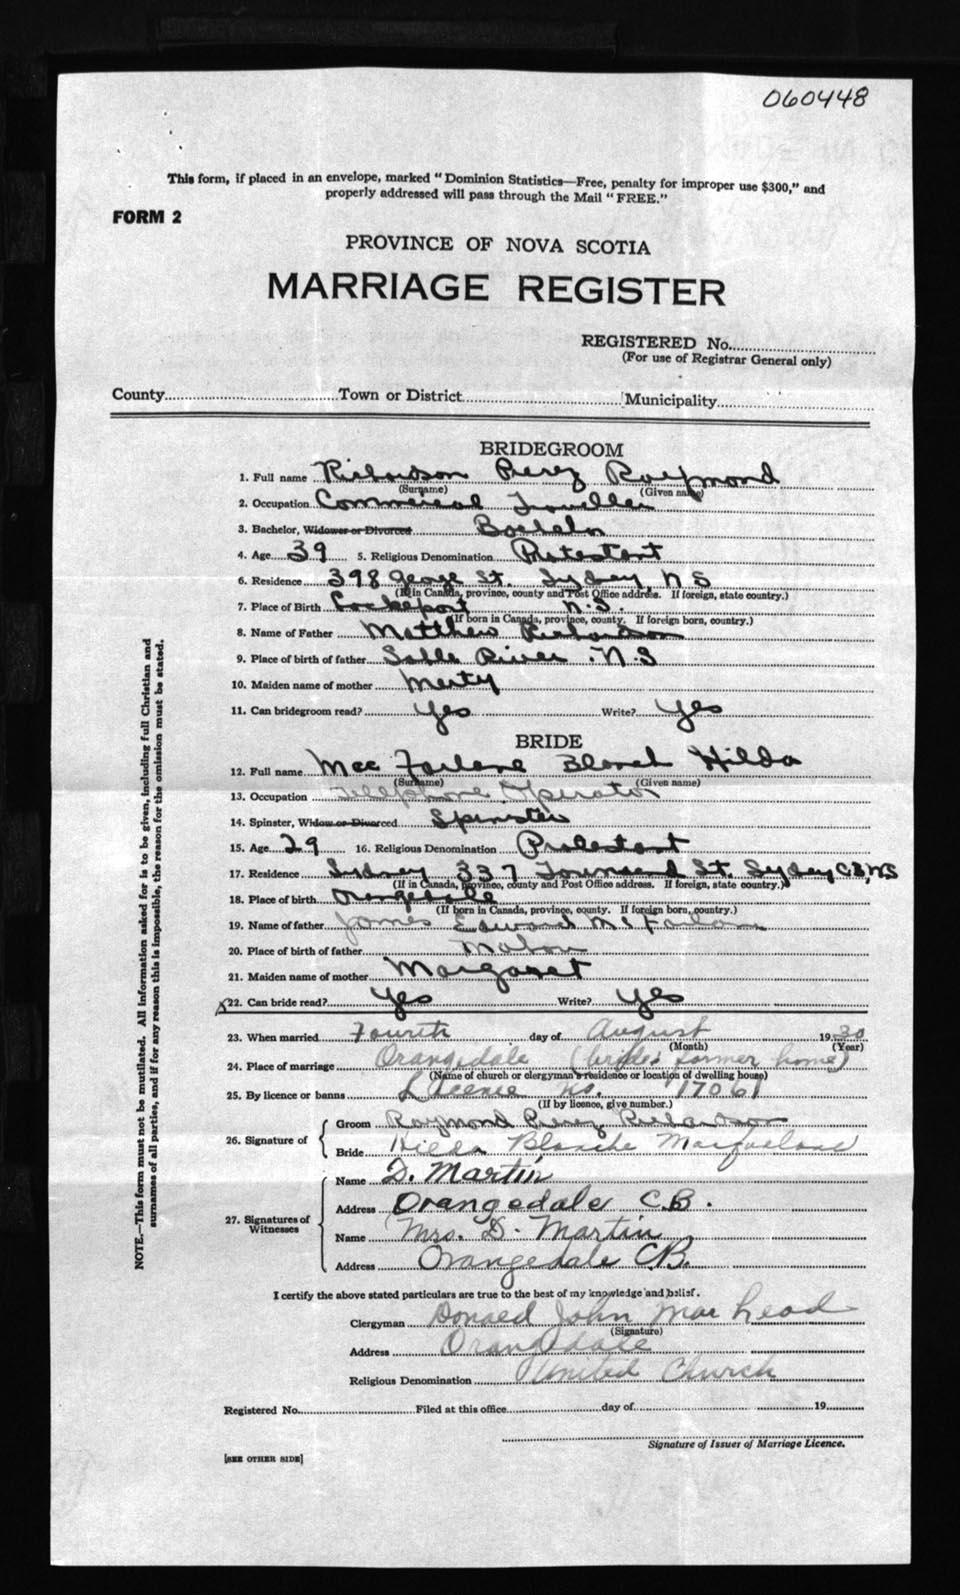 060448
This form, if placed in an envelope, marked "Dominion Statistics—Free, penalty for improper use $300," and
properly addressed will pass through the Mail "FREE."
FORM 2
PROVINCE OF NOVA SCOTIA
MARRIAGE REGISTER
REGISTERED No.
(For use of Registrar General only)
County Town or District Municipality
BRIDEGROOM
1. Full name Richardson Perez Raymond
(Surname) (Given name)
2. Occupation Commercial Traveller
3. Bachelor, Widower or Divorced Bachelor
4. Age 39 5. Religious Denomination Protestant
6. Residence 398 George St. Sydney, N S
(If in Canada, province, county and Post Office address. If foreign, state country.)
7. Place of Birth Lockeport N.S.
(If born in Canada, province, county. If foreign born, country.)
8. Name of Father Matthew Richardson
9. Place of birth of father Sable River N.S
10. Maiden name of mother Merty
11. Can bridegroom read? Yes Write? Yes
BRIDE
12. Full name Mac Farlane Blanch Hilda
(Surname) (Given name)
13. Occupation Telephone Operator
14. Spinster, Widow or Divorced Spinster
15. Age 29 16. Religious Denomination Protestant
17. Residence Sydney 337 Townsend St. Sydney C.B, N.S
(If in Canada, province, county and Post Office address. If foreign, state country.)
18. Place of birth Orangedale
(If born in Canada, province, county. If foreign born, country.)
19. Name of father James Edward McFarlane
20. Place of birth of father Mabou
21. Maiden name of mother Margaret
22. Can bride read? Yes Write? Yes
23. When married Fourth day of August 1930
(Month) (Year)
24. Place of marriage Orangedale (brides former home)
(Name of church or clergyman's residence or location of dwelling house)
25. By licence or banns Licence No. 17061
(If by licence, give number.)
26. Signature of
Groom Raymond Perez Richardson
Bride Hilda Blanche Macfarlane
27. Signatures of Witnesses
Name D. Martin
Address Orangedale C.B.
Name Mrs. D. Martin
Address Orangedale C.B.
I certify the above stated particulars are true to the best of my knowledge and belief.
Clergyman Donald John
(Signature)
Address Orangedale
Religious Denomination United Church
Registered No. Filed at this office day of 19
Signature of Issuer of Marriage Licence.
[SEE OTHER SIDE]
NOTE.—This form must not be mutilated. All information asked for is to be given, including full Christian and
surnames of all parties, and if for any reason this is impossible, the reason for the omission must be stated.